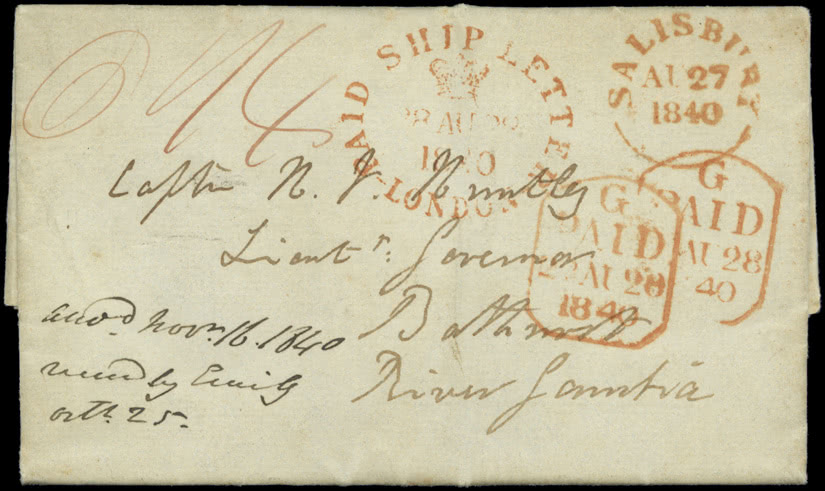 PAID SHIP LETTER LONDON
28 AU 28
1840
SALISBURY
AU 27
1840
G
PAID
AU 28
1840
G
PAID
AU 28
40
Captn H. V. Huntley
Lieutr. Governor
Bathurst
River Gambia
answd Novr. 16. 1840
recd by Emily
Octr. 25.